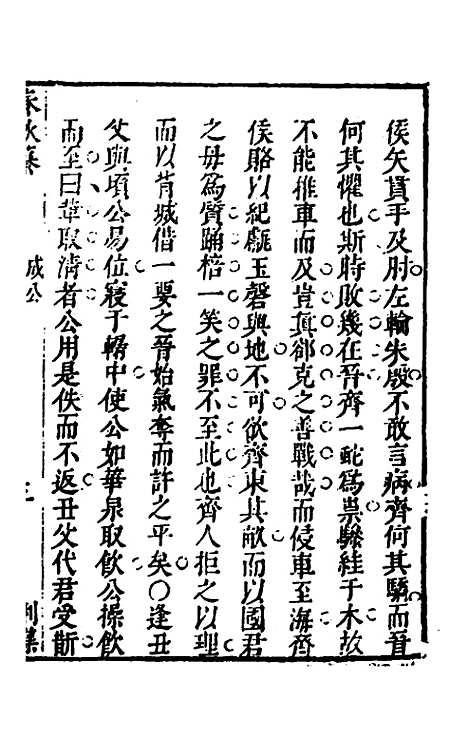 侯矢貫手及肘左輪朱殷不敢言病齊何其驕而晉
何其懼也斯時敗幾在晉齊一蛇爲祟驂絓于木故
不能推車而及豈眞郤克之善戰哉而侵車至海齊
侯賂以紀甗玉磬與地不可欲齊東其畝而以國君
之母爲質踊棓一笑之罪不至此也齊人拒之以理
而以背城借一要之晉始氣奪而許之平矣○逢丑
父與頃公易位寢于轏中使公如華泉取飲公操飲
而至曰革取清者公用是佚而不返丑父代君受斮
成公